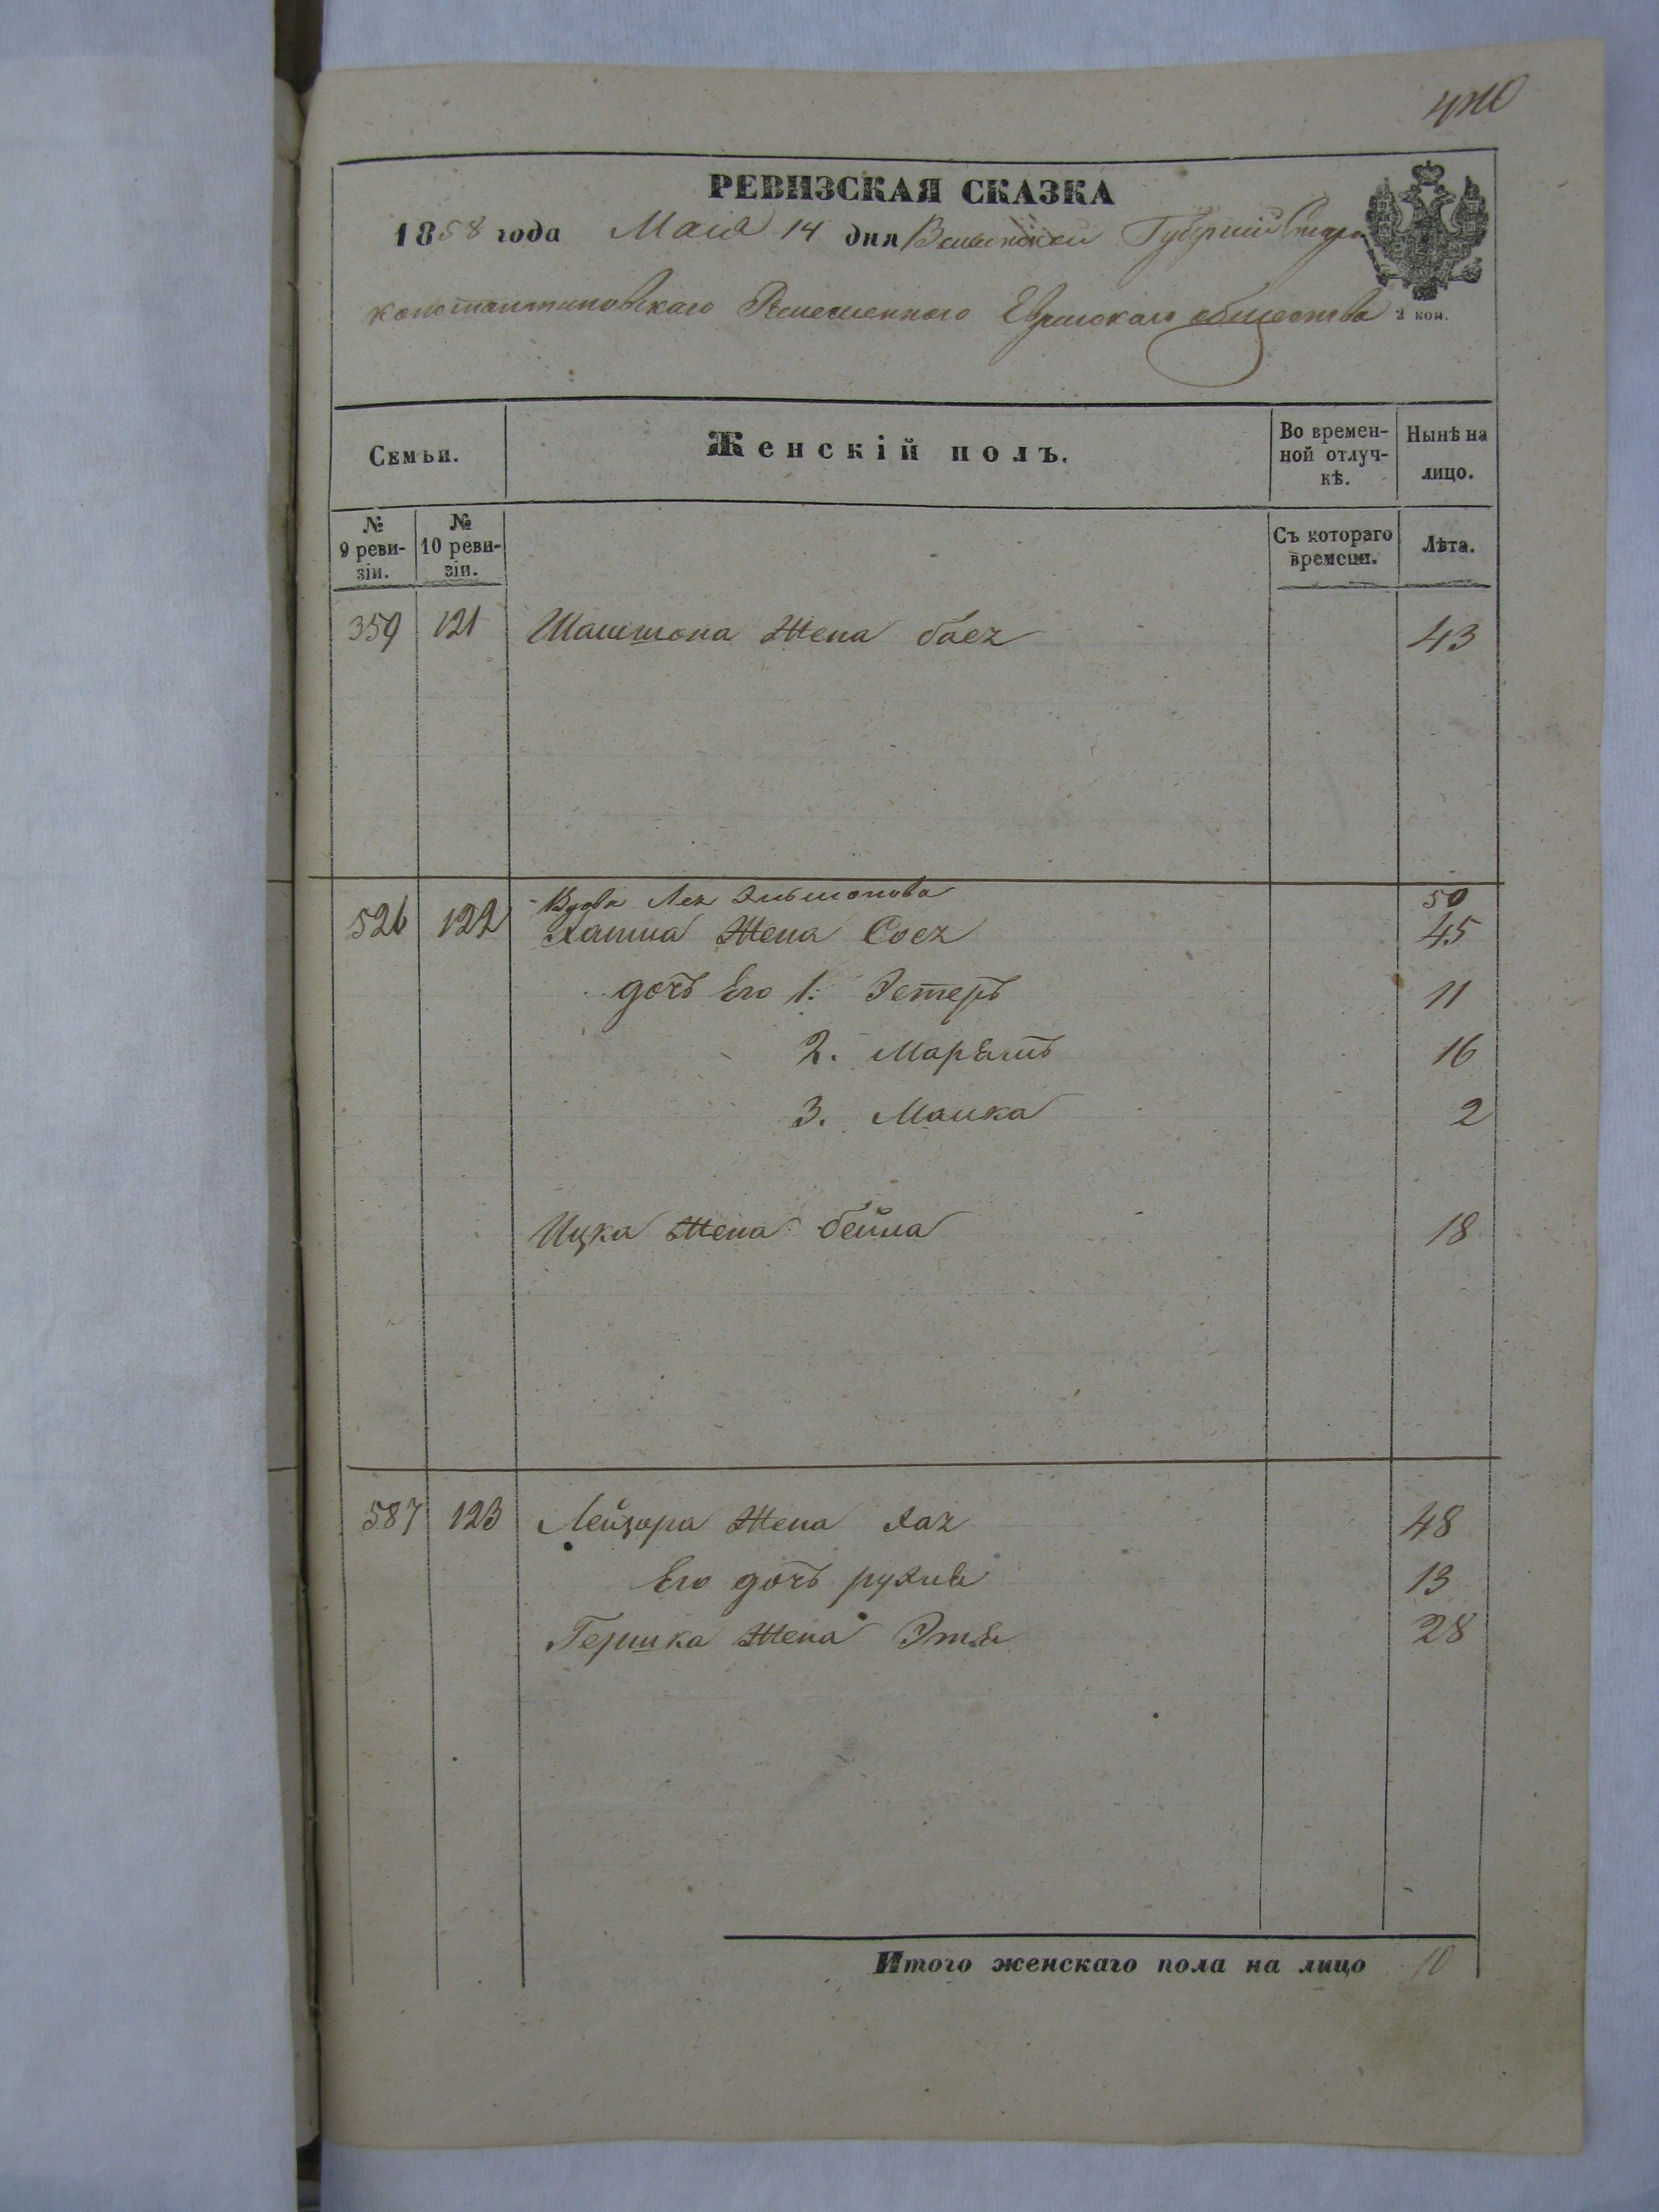 РЕВИЗСКАЯ СКАЗКА
1858 года Маія 14 дня Волынской Губерніи Старо
константиновскаго Ремесленнаго Еврейскаго общества 2 коп.
Семьи. Женскій полъ. Во времен-ной отлуч-кѣ. Нынѣ на лицо.
№ 9 реви-зіи. № 10 реви-зіи. Съ котораго времени. Лѣта.
359 121 Жена 43
Вдова 50
526 122 Жена 45
дочь Его 1. Эстеръ 11
2. 16
3. Малка 2
Ицка Жена бейла 18
587 123 Лейзора Жена 48
Его дочь рухля 13
Гершка Жена Этля 28
Итого женскаго пола на лицо 10